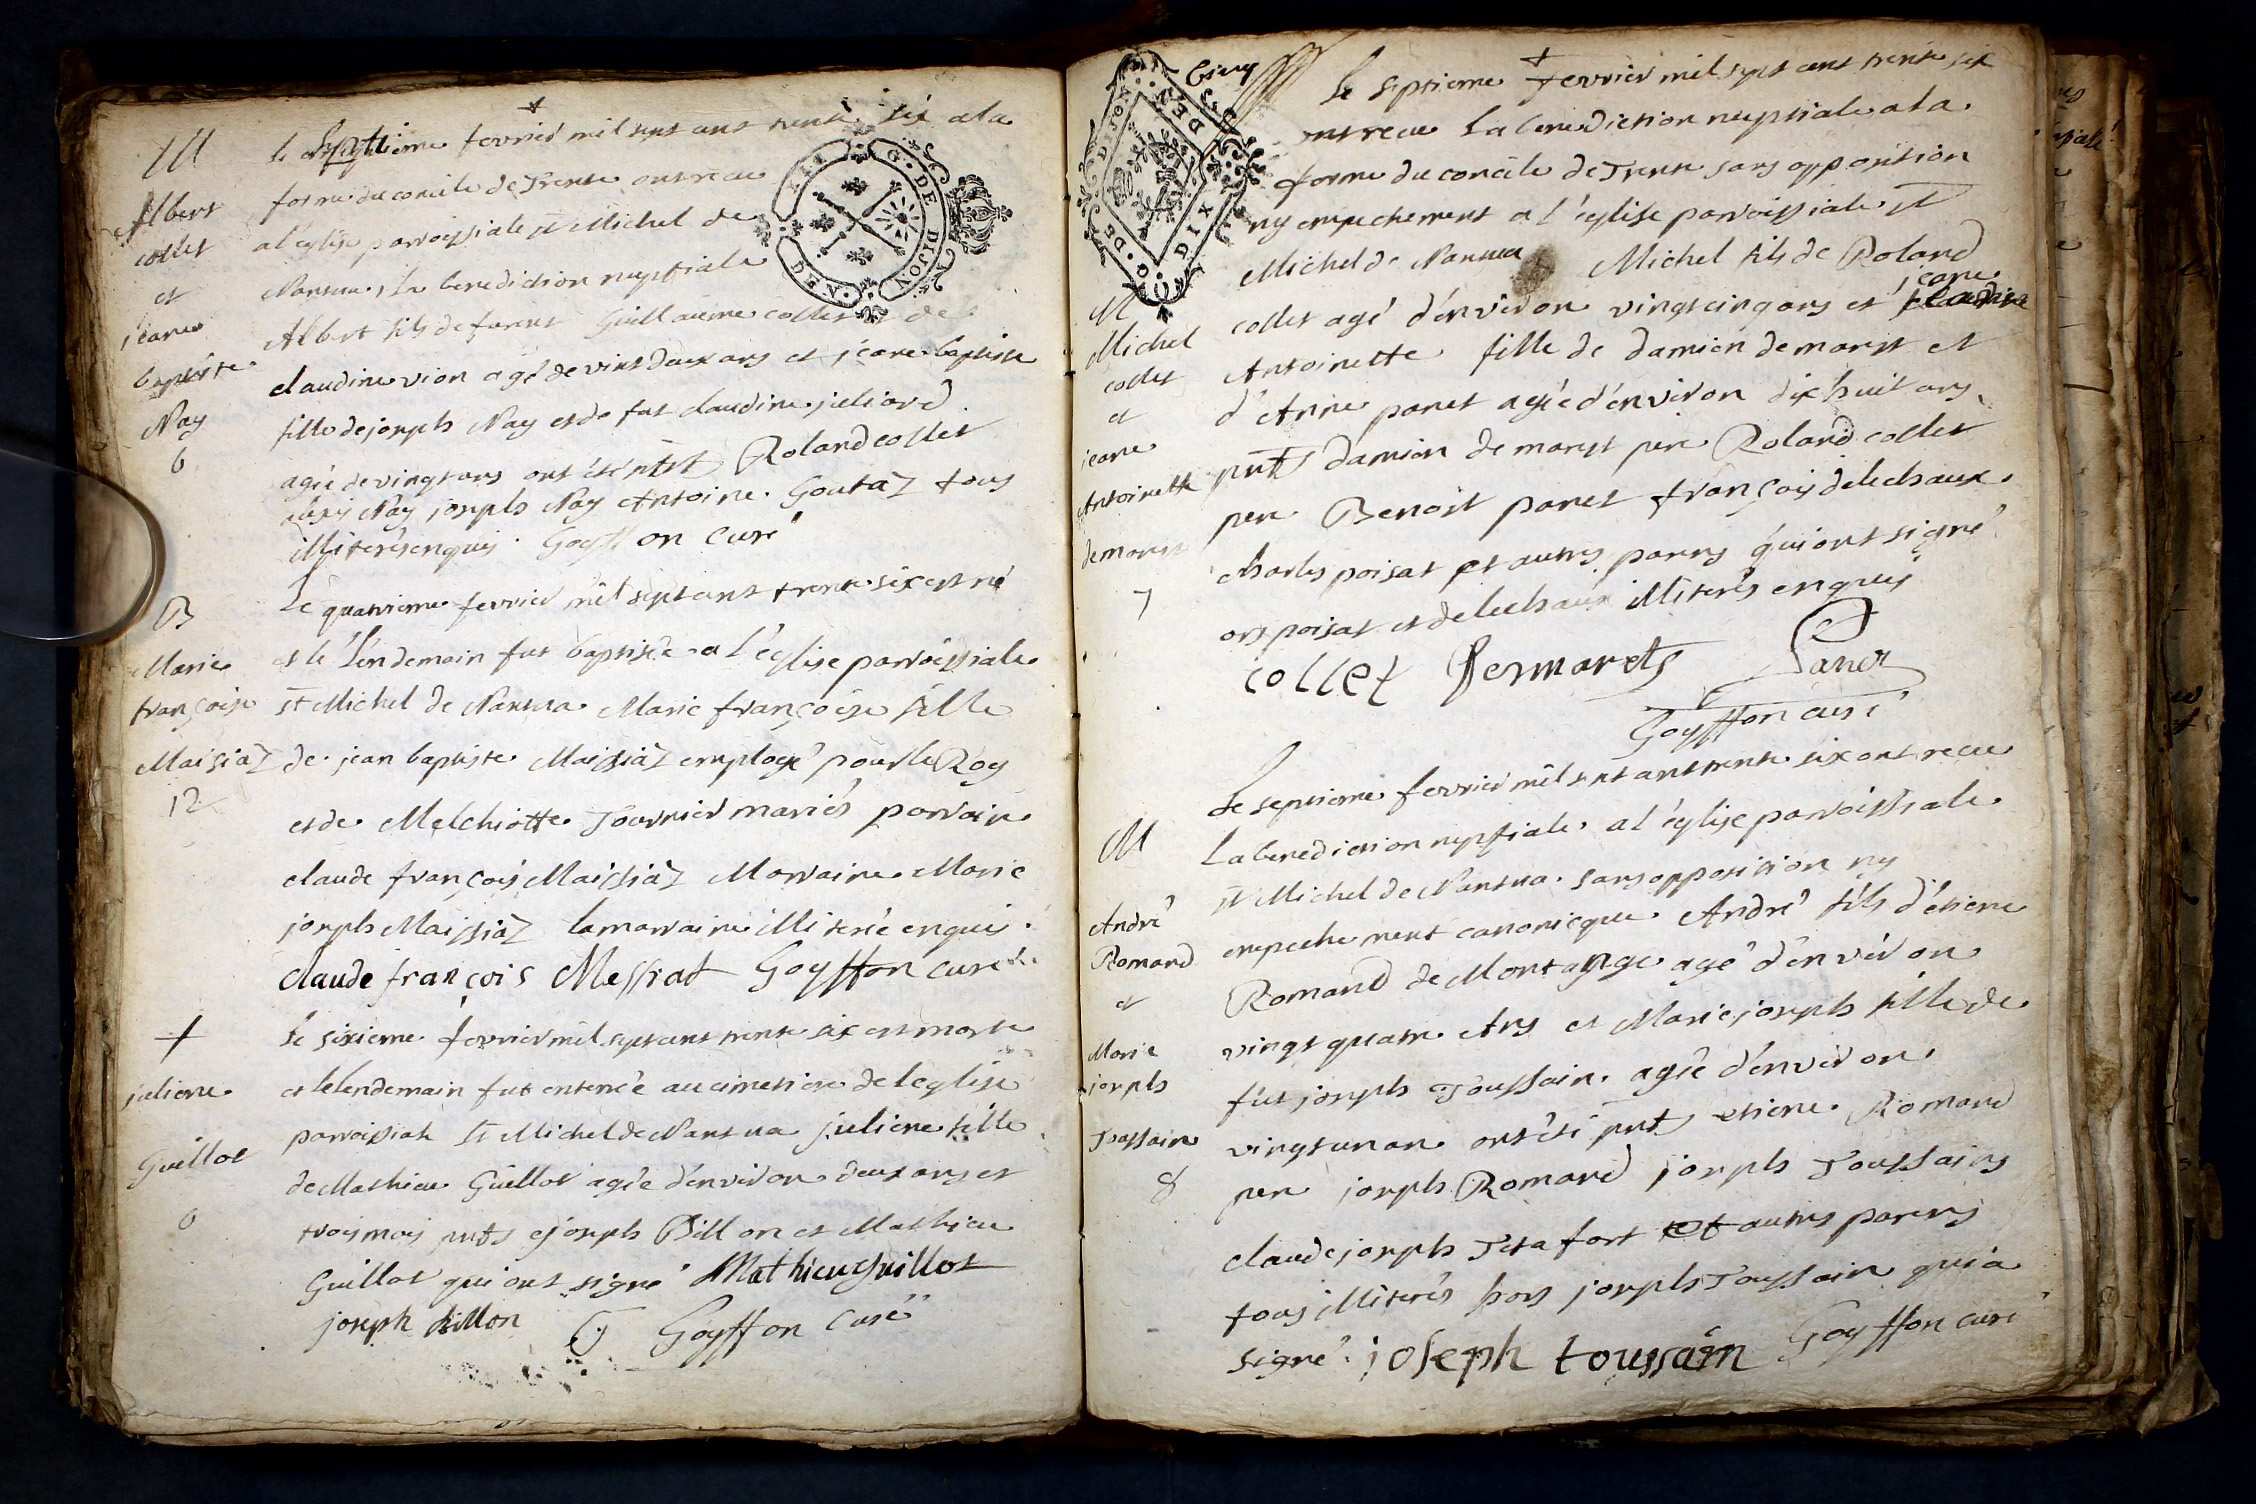 M
Albert
collet
et
jeane
baptiste
Nay
6
le septieme fevrier mil sept cent trente six a la
forme du concile de Trente ont receu
a l'eglise parroissiale st Michel de
Nantua, la benediction nuptiale
Albert fils de furent Guillaume collet et de
claudine vion agé de vint deux ans et jeane baptiste
fille de joseph Nay et de fut claudine juliard
agée de vingt ans ont été pnts Roland collet
Nay joseph Nay Antoine Goutaz tous
illiterés enquis Goyffon Curé
B
Marie
françoise
Maisiaz
12
Le quatrieme fevrier mil sept cent trente six est né
et le l'endemain fut baptisée a l'église parroissiale
st Michel de Nantua Marie françoise fille
de jean baptiste Maissiaz employé pour le Roy
et de Melchiotte Tournier mariés parrain
claude françois Maissiaz Marraine Marie
joseph Maissiaz la marraine illiterée enquis
claude françois Messiat Goyffon curé
+
juliene
Guillot
6
le sixieme fevrier mil sept cent trente six est morte
et le lendemain fut enterrée au cimetiere de l'eglise
parroissiale st Michel de Nantua juliene fille
de Mathieu Guillot agée d'environ deux ans et
trois mois pnts joseph Billon et Mathieu
Guillot qui ont signé Mathieu Guillot
joseph billon Goyffon Curé
G. DE DIJON
cinq
G. DE DIJON
DIX DEN
M
Michel
collet
et
jeane
Antoinette
demarest
7
Le septieme fevrier mil sept cent trente six
ont receu la benediction nuptiale a la
forme du concile de Trente sans opposition
ny empechement a l'église parroissiale st
Michel de Nantua Michel fils de Roland
collet agé d'environ vingt cinq ans et jeane
Antoinette fille de damien demarest et
d'Anne panet agée d'environ dix huit ans
pnts damien demarest pere Roland collet
pere Benoit panet françois delechaux
charles poisat et autres parens qui ont signé
ors poisat et delechaux illiterés enquis
collet Desmarets Panet
Goyffon curé
M
André
Romand
et
Marie
joseph
Toussain
8
Le septieme fevrier mil sept cent trente six ont receu
La benediction nuptiale a l'église parroissiale
st Michel de Nantua sans opposition ny
empechement canonicque André fils d'étiene
Romand de Montange agé d'environ
vingt quatre Ans et Marie joseph fille de
fut joseph Toussain agée d'environ
vingt un an ont été pnts etiene Romand
pere joseph Romand joseph Toussains
claude joseph Tetafort et autres parens
tous illiterés hors joseph Toussain qui a
signé joseph toussain Goyffon curé